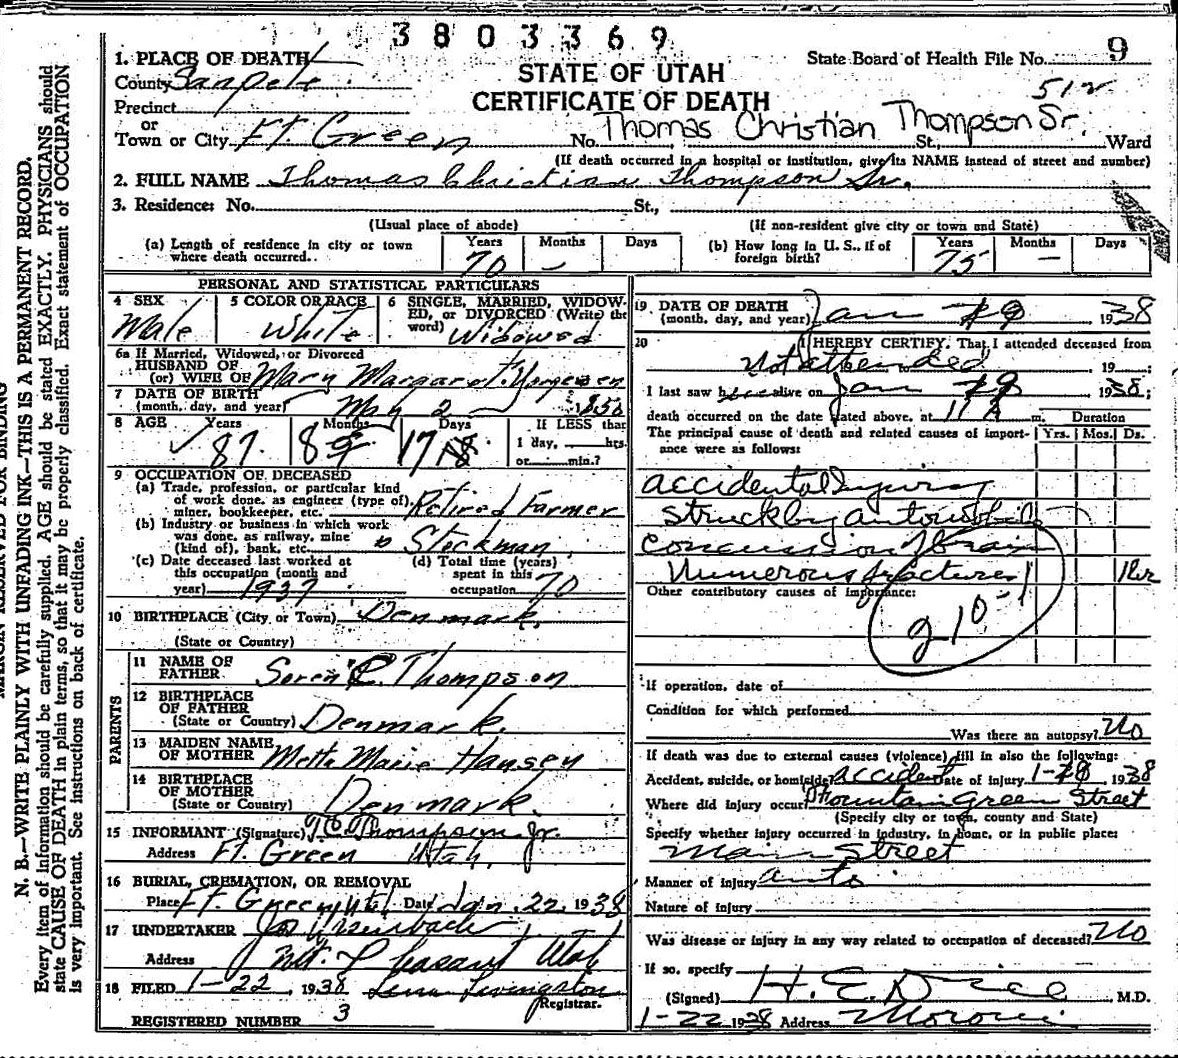 3803369
1. PLACE OF DEATH
County Sanpete
Precinct
or
Town or City Ft. Green
STATE OF UTAH
CERTIFICATE OF DEATH
State Board of Health File No. 9
512
No. Thomas Christian Thompson Sr. St., Ward
(If death occurred in a hospital or institution, give its NAME instead of street and number)
2. FULL NAME Thomas Christian Thompson Sr.
3. Residence: No. St.,
(Usual place of abode) (If non-resident give city or town and State)
(a) Length of residence in city or town where death occurred.. Years 70 Months — Days
(b) How long in U. S., if of foreign birth? Years 75 Months — Days
PERSONAL AND STATISTICAL PARTICULARS
4 SEX Male
5 COLOR OR RACE White
6 SINGLE, MARRIED, WIDOWED, or DIVORCED (Write the word) Widowed
6a If Married, Widowed, or Divorced
HUSBAND OF
(or) WIFE OF Mary Margaret Yorgensen
7 DATE OF BIRTH
(month, day, and year) May 2 1850
8 AGE Years 87 Months 8 Days 17 18
If LESS than
1 day, hrs.
or min.?
9 OCCUPATION OF DECEASED
(a) Trade, profession, or particular kind of work done, as engineer (type of), miner, bookkeeper, etc. Retired Farmer
(b) Industry or business in which work was done, as railway, mine (kind of), bank, etc. Stockman
(c) Date deceased last worked at this occupation (month and year) 1937
(d) Total time (years) spent in this occupation 70
10 BIRTHPLACE (City or Town) Denmark.
(State or Country)
PARENTS
11 NAME OF FATHER Soren C. Thompson
12 BIRTHPLACE OF FATHER
(State or Country) Denmark.
13 MAIDEN NAME OF MOTHER Metta Marie Hansen
14 BIRTHPLACE OF MOTHER
(State or Country) Denmark.
15 INFORMANT (Signature) T.C. Thompson Jr.
Address Ft. Green Utah.
16 BURIAL, CREMATION, OR REMOVAL
Place Ft. Green, Utah Date Jan. 22, 1938
17 UNDERTAKER
Address Mt. Pleasant Utah
18 FILED 1-22, 1938 Lena Livingston
Registrar.
REGISTERED NUMBER 3
19 DATE OF DEATH
(month, day, and year) Jan 19 1938
20 I HEREBY CERTIFY, That I attended deceased from
Not attended 19 ;
I last saw h alive on Jan 1938;
death occurred on the date stated above, at 11 A m.
The principal cause of death and related causes of importance were as follows:
Duration
Yrs. Mos. Ds.
accidental Injury
struck by automobile
concussion of brain
Numerous fractures 1 hr
Other contributory causes of importance:
210-1
If operation, date of
Condition for which performed
Was there an autopsy? No
If death was due to external causes (violence) fill in also the following:
Accident, suicide, or homicide? accident Date of injury 1-18 1938
Where did injury occur? Fountain Green Street
(Specify city or town, county and State)
Specify whether injury occurred in industry, in home, or in public place:
Main Street
Manner of injury auto
Nature of injury
Was disease or injury in any way related to occupation of deceased? No
If so, specify
(Signed) , M.D.
1-22 1938 Address Moroni
MARGIN RESERVED FOR BINDING
N. B.—WRITE PLAINLY WITH UNFADING INK—THIS IS A PERMANENT RECORD.
Every item of information should be carefully supplied. AGE should be stated EXACTLY. PHYSICIANS should
state CAUSE OF DEATH in plain terms, so that it may be properly classified. Exact statement of OCCUPATION
is very important. See instructions on back of certificate.